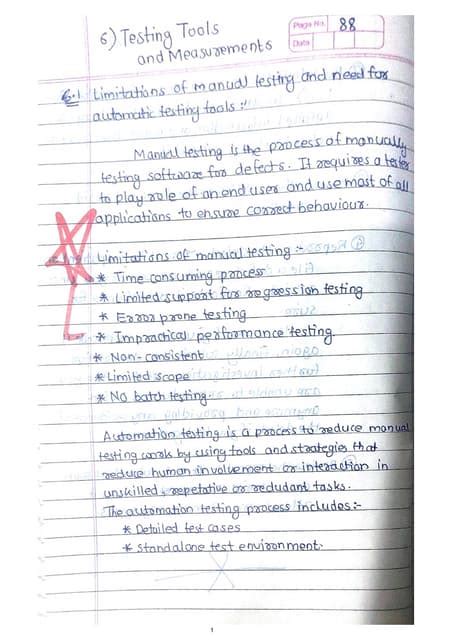 6) Testing Tools
and Measurements
Page No. 88
Date
6.1 Limitations of manual testing and need for
automatic testing tools :-
Manual testing is the process of manually
testing software for defects. It requires a tester
to play role of an end user and use most of all
applications to ensure correct behaviour.
Limitations of manual testing :-
* Time consuming process
* Limited support for regression testing
* Error prone testing
* Impractical performance testing
* Non-consistent
* Limited scope
* No batch testing
Automation testing is a process to reduce manual
testing work by using tools and strategies that
reduce human involvement or interaction in
unskilled, repetative or redudant tasks.
The automation testing process includes:-
* Detailed test cases
* Standalone test environment.
1